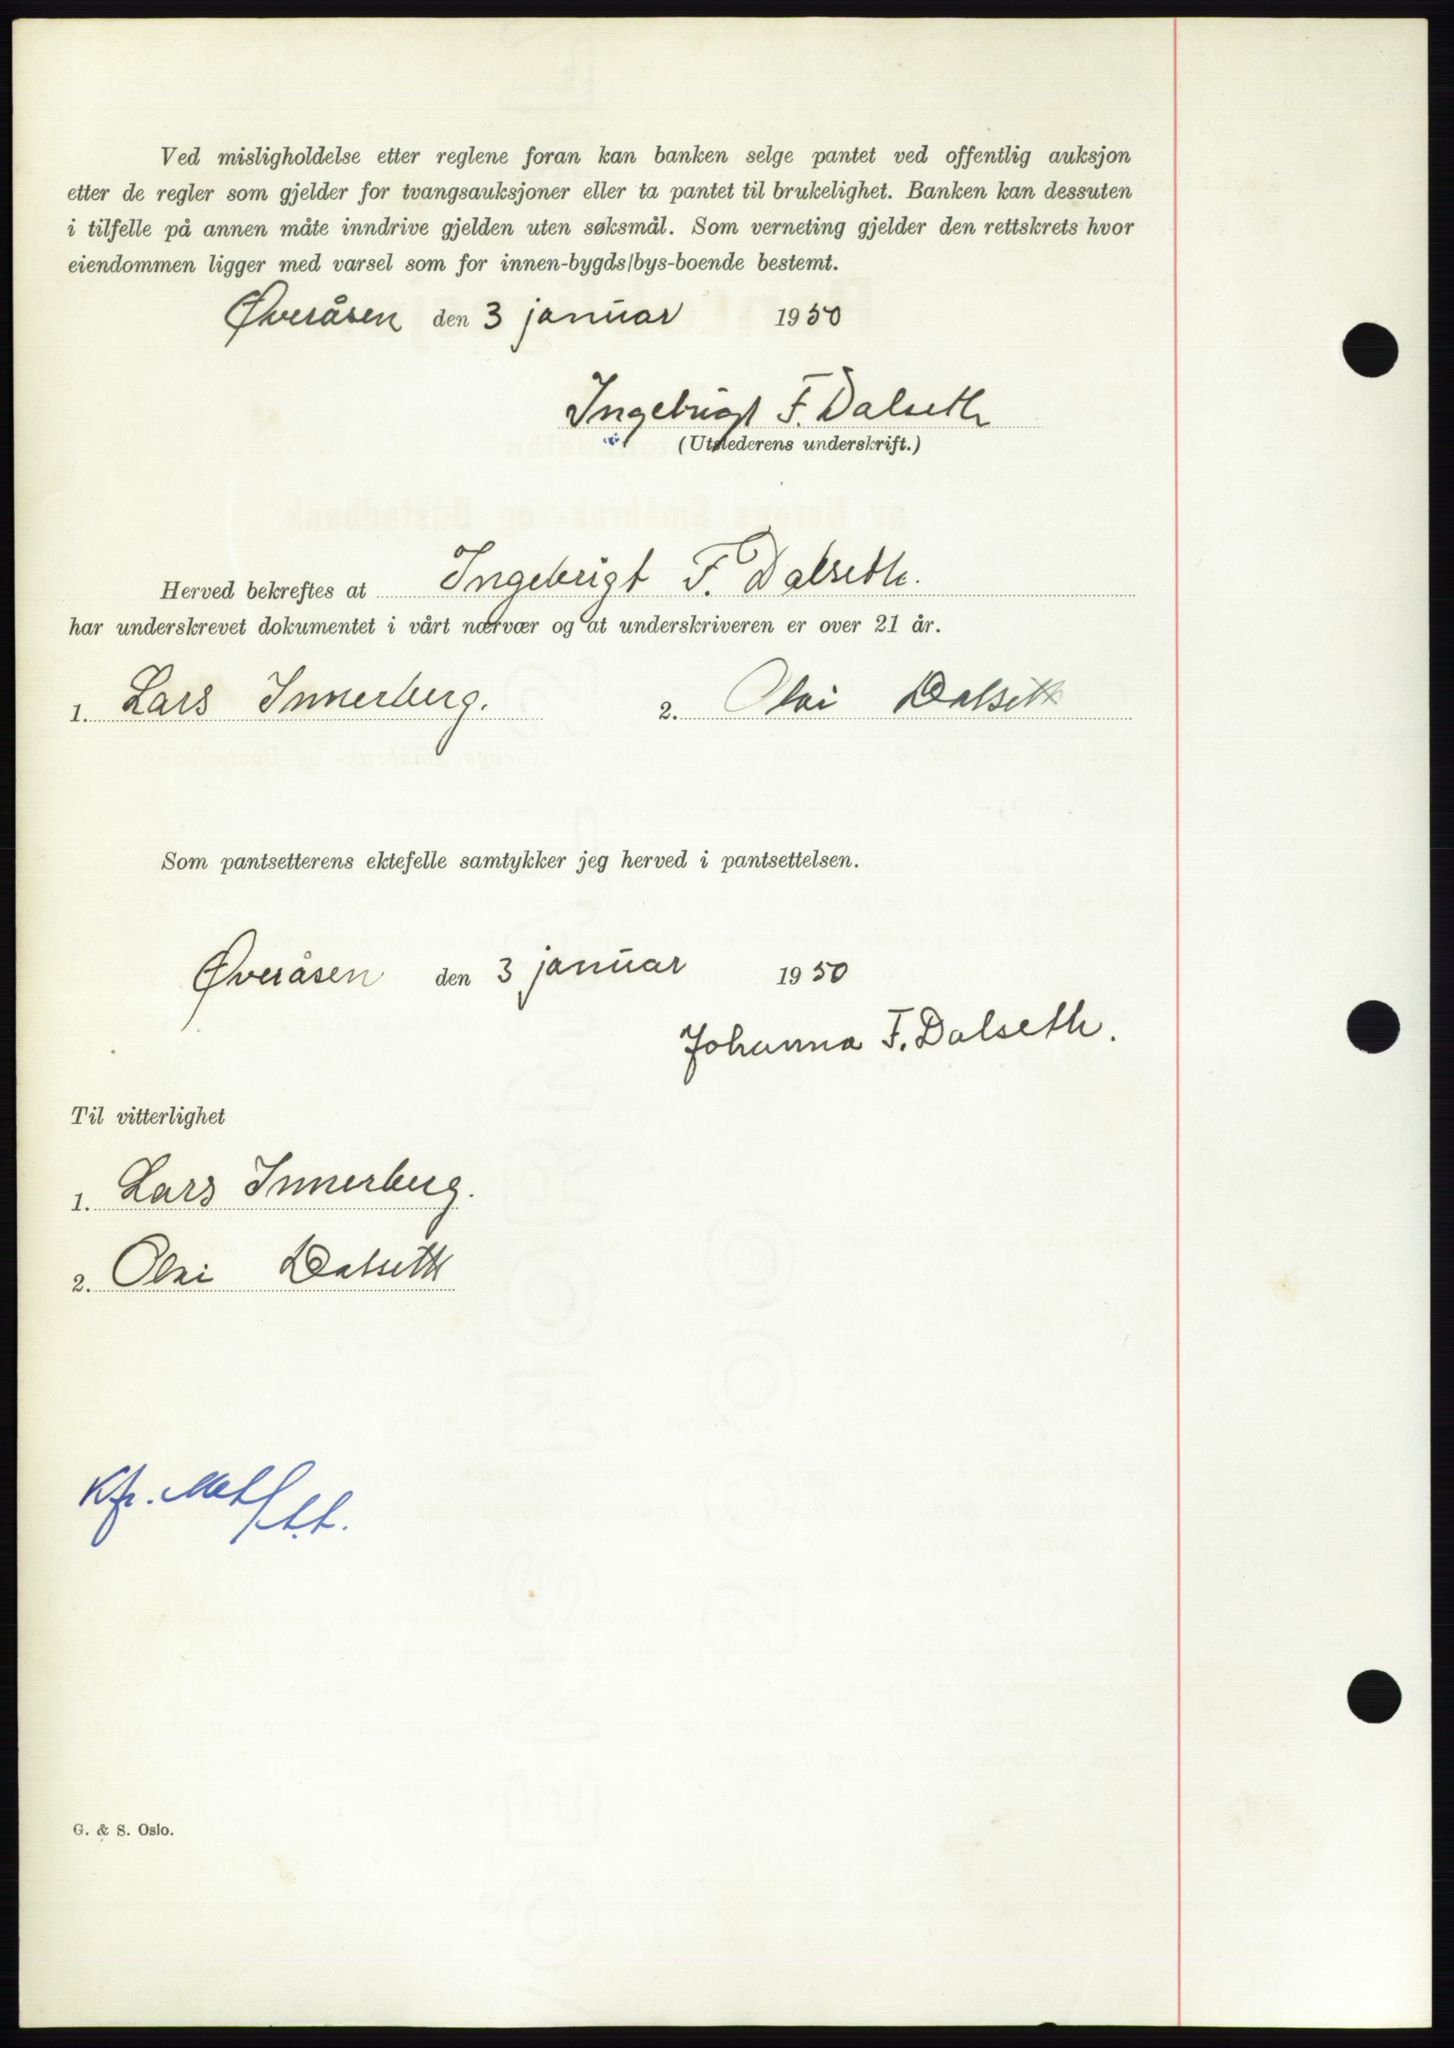 Ved misligholdelse etter reglene foran kan banken selge pantet ved offentlig auksjon
etter de regler som gjelder for tvangsauksjoner eller ta pantet til brukelighet. Banken kan dessuten
i tilfelle på annen måte inndrive gjelden uten søksmål. Som verneting gjelder den rettskrets hvor
eiendommen ligger med varsel som for innen-bygds/bys-boende bestemt.
Øveråsen den 3 januar 1950
Ingebrigt F. Dalseth
(Utstederens underskrift.)
Herved bekreftes at Ingebrigt F. Dalseth.
har underskrevet dokumentet i vårt nærvær og at underskriveren er over 21 år.
1. Lars Innerberg. 2. Olai Dalseth
Som pantsetterens ektefelle samtykker jeg herved i pantsettelsen.
Øveråsen den 3 januar 1950
Johanna F. Dalseth.
Til vitterlighet
1. Lars Innerberg.
2. Olai Dalseth
Kfr.
G. & S. Oslo.